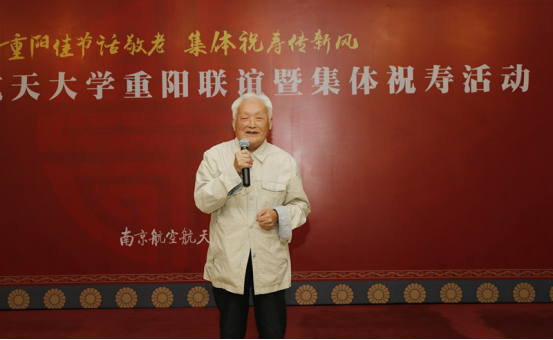 重阳佳节话敬老 集体祝寿传新风
航天大学重阳联谊暨集体祝寿活动
南京航空航天